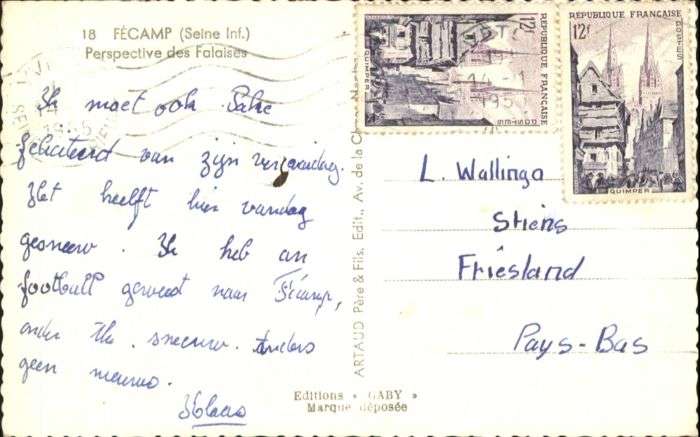 18 FÉCAMP (Seine Inf.)
Perspective des Falaises
Ik moet ook
feliciteerd van zijn verjaardag.
Het heeft hier vandag
gesneew. Ik heb an
football geweest naar Fécamp,
onder the sneeuw. Anders
geen nieuws.
Klaas
ARTAUD Père & Fils, Edit., Av. de la
Editions « GABY »
Marque déposée
12f
RÉPUBLIQUE FRANÇAISE
POSTES
QUIMPER
RÉPUBLIQUE FRANÇAISE
12f
POSTES
QUIMPER
L. Wallinga
Stiens
Friesland
Pays-Bas